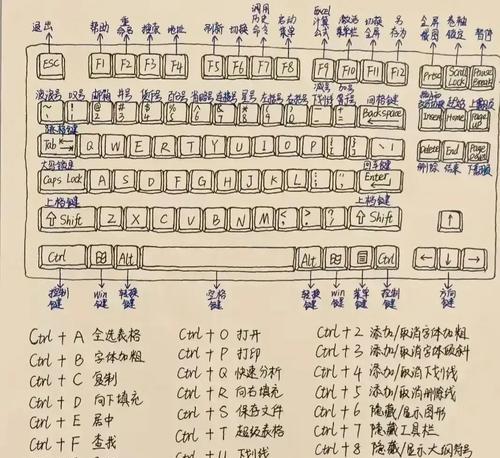 退出 帮助 重命名 搜索 地址 刷新 切换 调用历史命令 启动菜单 Excel计算公式 激活菜单栏 切换全屏 另存为 全屏截图 卷轴锁定 暂停
ESC F1 F2 F3 F4 F5 F6 F7 F8 F9 F10 F11 F12 Prtsc Scroll Lock Pause Break
波浪号 叹号 邮箱 井号 百分号 星号 左括号 右括号 减号下划线 加号等号 回格键
~ ` ! 1 @ 2 # 3 $ 4 % 5 & 7 * 8 ( 9 ) 0 Backspace Insert Home Page up
Tab Q W E R T Y U I O P { [ } ] | \ Delete End Page down
大写锁定 回车键 删除 结尾 下翻页
Caps Lock A S D F G H J K L Enter
上档键 上档键
⇧ Shift Z X C V B N M < , > . ? / ⇧ Shift ↑
Ctrl Alt Alt Ctrl ← ↓ →
控制键 win键 空格键 win键 菜单键 控制键 方向键
Ctrl + A 全选表格 Ctrl + O 打开 Ctrl + 2 添加/取消字体加粗
Ctrl + B 字体加粗 Ctrl + P 打印 Ctrl + 3 添加/取消字体倾斜
Ctrl + C 复制 Ctrl + Q 快速分析 Ctrl + 4 添加/取消下划线
Ctrl + D 向下填充 Ctrl + R 向右填充 Ctrl + 5 添加/取消删除线
Ctrl + E 居中 Ctrl + S 保存文件 Ctrl + 6 隐藏/显示图形
Ctrl + F 查找 Ctrl + T 超级表格 Ctrl + 7 隐藏工具栏
Ctrl + U 下划线 Ctrl + 8 隐藏/显示大纲符号